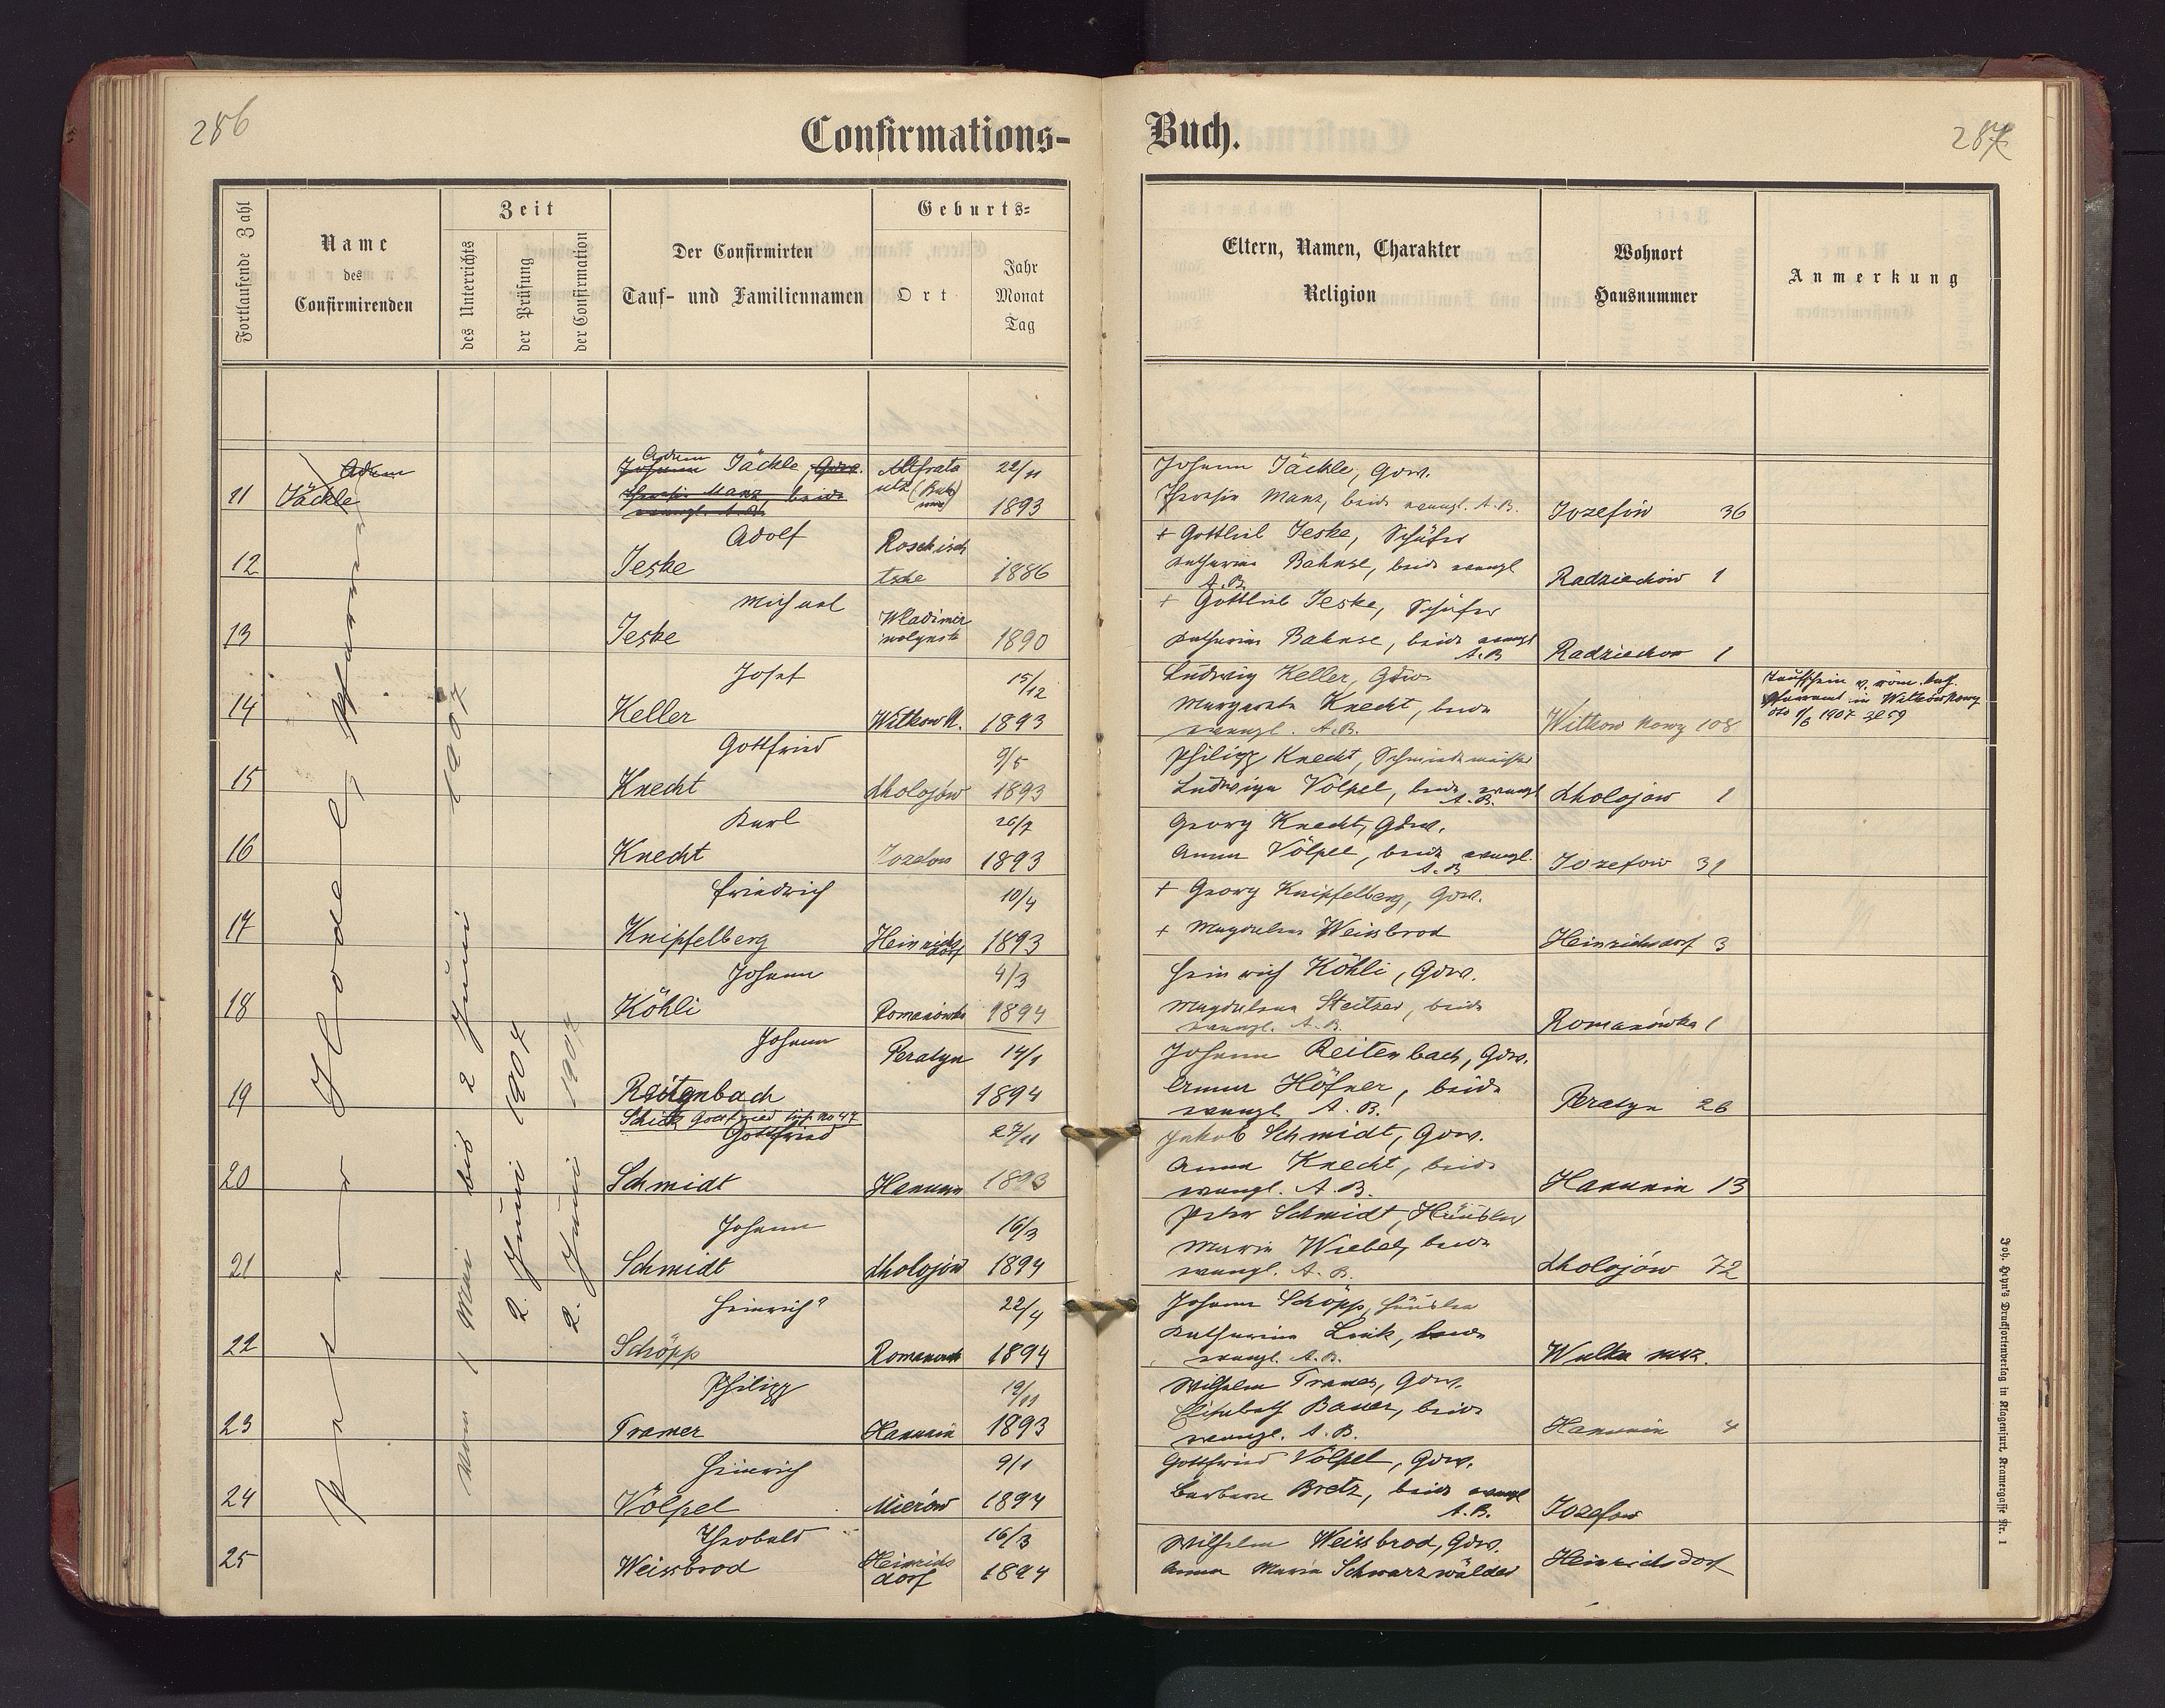 286
Confirmations-
Buch.
287
Fortlaufende Zahl
Name
des
Confirmirenden
Zeit
des Unterrichts
der Prüfung
der Confirmation
Der Confirmirten
Tauf- und Familiennamen
Geburts-
Ort
Jahr
Monat
Tag
Eltern, Namen, Charakter
Religion
Wohnort
Hausnummer
Anmerkung
Vom 1 Mai bis 2 Juni 1907
2. Juni 1907
2. Juni 1907
Adam
11 Jäckle
Adam
Johann Jäckle, Gdw.
Manz, beide
evangl. A.B.
22/11
1893
Johann Jäckle, Gdw.
Manz, beide evangl. A.B.
Jozefów 36
12 Adolf
Jeske
Roschischtsche
1886
+ Gottlieb Jeske, Schäfer
Katharina Bahnse, beide evangl
A.B.
Radziechów 1
13 Michael
Jeske
Wladimir
wolynsk
1890
+ Gottlieb Jeske, Schäfer
Katharina Bahnse, beide evangl
A.B
Radziechow 1
14 Josef
Keller
Witkow N.
15/12
1893
Ludwig Keller, Gdw.
Margareta Knecht, beide
evangl. A.B.
Witkow Nowy 108
Taufschein v. röm. kath.
Pfarramt in Witków Nowy
dto 1/6 1907 Zl 59
15 Gottfried
Knecht
Cholojów
9/5
1893
Philipp Knecht, Schmiedemeister
Ludwiga Völpel, beide evangl
A.B.
Cholojów 1
16 Karl
Knecht
Jozefow
26/7
1893
Georg Knecht, Gdw.
Anna Völpel, beide evangl.
A.B
Jozefow 31
17 Friedrich
Knipfelberg
Heinrichsdorf
10/4
1893
+ Georg Knipfelberg, Gdw.
+ Magdalena Weissbrod
Heinrichsdorf 3
18 Johann
Köhli
Romanówka
4/3
1894
Heinrich Köhli, Gdw.
Magdalena Steitzer, beide
evangl. A.B.
Romanówka 1
19 Johann
Reitenbach
Peratyn
14/1
1894
Johann Reitenbach, Gdw.
Anna Höfner, beide
evangl. A.B.
Peratyn 26
20 Gottfried
Schmidt
Hanunin
27/11
1893
Jakob Schmidt, Gdw.
Anna Knecht, beide
evangl. A.B.
Hanunin 13
21 Johann
Schmidt
Cholojów
16/3
1894
Peter Schmidt, Häusler
Maria Wiebel, beide
evangl. A.B.
Cholojów 72
22 Heinrich
Schöpp
22/4
1894
Johann Schöpp, Häusler
Katharina Link, beide
evangl. A.B.
Wulka
23 Philipp
Tramer
Hanunin
19/11
1893
Wilhelm Tramer, Gdw.
Elisabeth Bauer, beide
evangl. A.B.
Hanunin 4
24 Heinrich
Völpel
Mierów
9/1
1894
Gottfried Völpel, Gdw.
Barbara Bretz, beide evangl
A.B.
Jozefow
25 Theobald
Weissbrod
Heinrichsdorf
16/3
1894
Wilhelm Weissbrod, Gdw.
Anna Maria Schwarzwälder
Heinrichsdorf
Joh. Heyn's Drucksortenverlag in Klagenfurt, Kramergasse Nr. 1